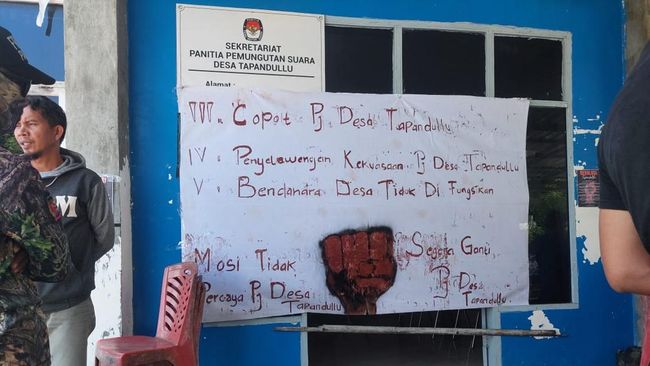 SEKRETARIAT
PANITIA PEMUNGUTAN SUARA
DESA TAPANDULLU
Alamat :
III. Copot Pj Desa Tapandullu
IV. Penyelawengan Kekuasaan Pj Desa Tapandullu
V. Bendahara Desa Tidak Di Fungsikan
Mosi Tidak
Percaya Pj Desa
Tapandullu
Segera Ganti
Pj Desa
Tapandullu